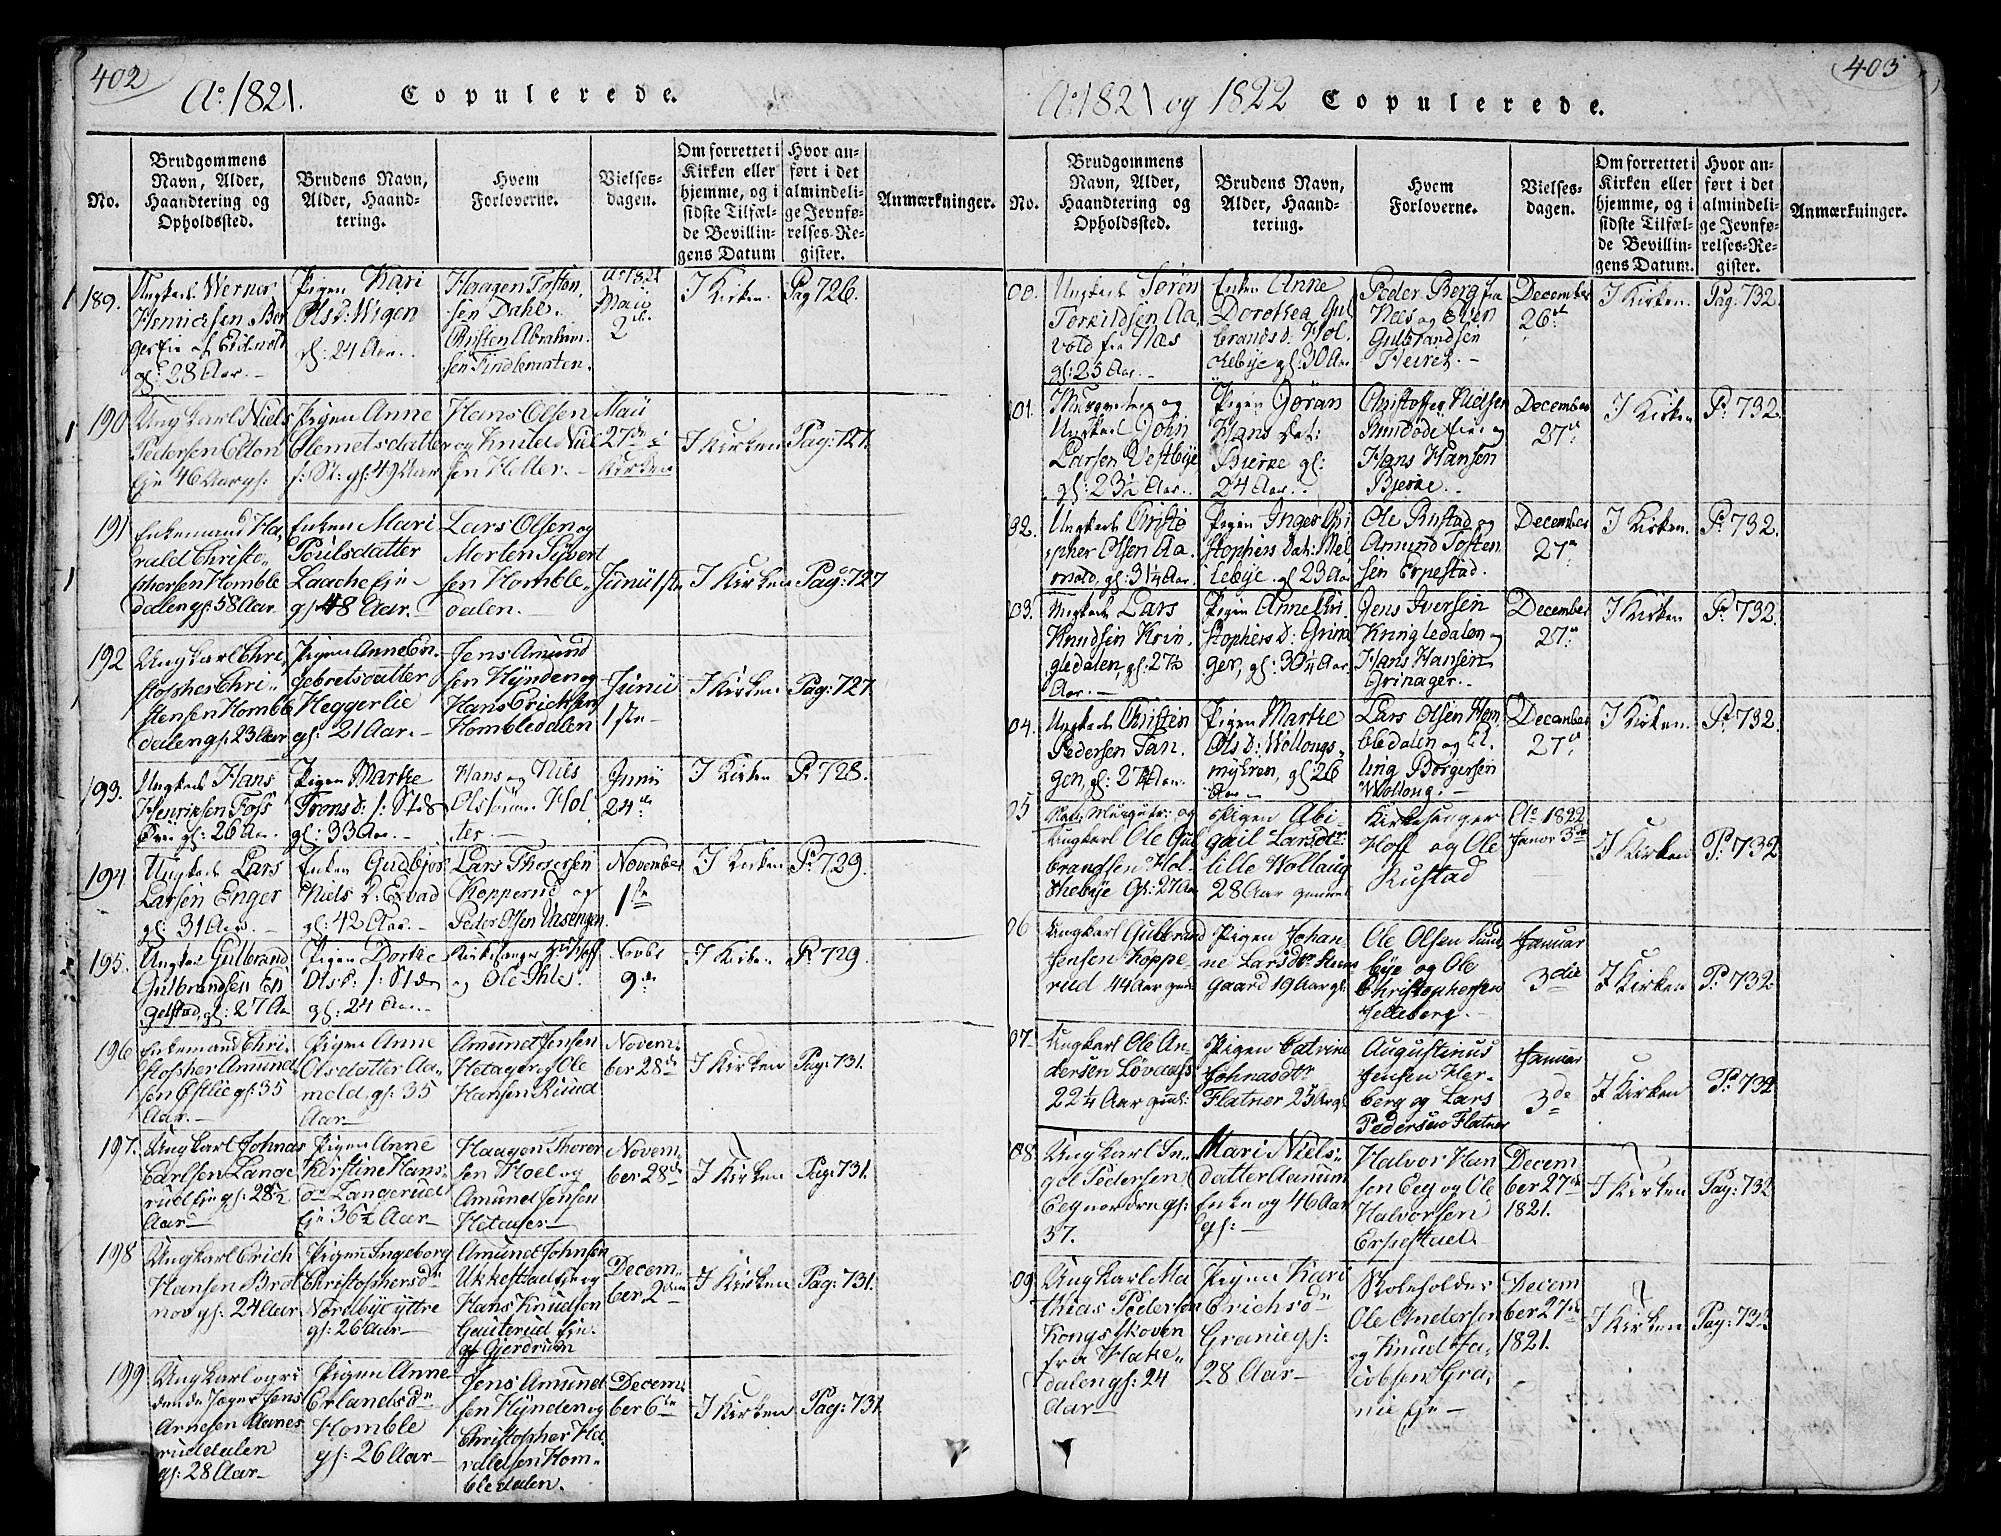 402
Ao 1821. Copulerede.
No.
Brudgommens Navn, Alder, Haandtering og Opholdssted.
Brudens Navn, Alder, Haandtering.
Hvem Forloverne.
Vielsesdagen.
Om forrettet i Kirken eller hjemme, og i sidste Tilfælde Bevillingens Datum
Hvor anført i det almindelige Jevnførelses-Register.
Anmærkninger.
189.
Ungkarl Werner
Henricsen Ber
ger Eie
gl: 28 Aar.
Pigen Kari
Olsd: Wigen
gl: 24 Aar.
Haagen Tosten
sen Dahl
Christen Abraham
sen Findlemarken.
Ao 1821
Maii
2
I Kirken.
Pag 726.
190
Ungkarl Niels
Pedersen Elton
Eje 46 Aar gl:
Pigen Anne
Clemetsdatter
gl: 49 Aar
Hans Olsen
og Knud Niel
sen Holter.
Maii
27de i
Kirken
I Kirken
Pag: 727.
191
Enkemand Ha
rald Christo
phersen Homble
dalen gl: 58 Aar.
Enken Mari
Poulsdatter
Laache Eje
gl 48 Aar.
Lars Olsen og
Morten Syvert
sen Homble
dalen.
Junii 1ste
I Kirken
Pag: 727
192
Ungkarl Chri
stopher Chri
stensen Homble
dalen gl. 23 Aar
Pigen Anne En
gebretsdatter
Heggerlie
gl: 21 Aar.
Jens Amund
sen Hynden og
Hans Ericksen
Hombledalen
Junii
1ste
I Kirken
Pag: 727.
193.
Ungkarl Hans
Henrichsen Foss
Eie gl: 26 Aar.
Pigen Marthe
Tronsd:
gl: 33 Aar.
Hans og Niels
Olsen Hol
ter.
Junii
24de
I Kirken
P: 728.
194
Ungkarl Lars
Larsen Enger
gl: 31 Aar.
Enken Gudbjør
Niels D:
gl: 42 Aar.
Lars Thoresen
Kopperud og
Peder Olsen Aasengen
November
1ste
I Kirken
P: 729.
195.
Ungkarl Gulbrand
Gulbrandsen En
gelstad, gl: 27 Aar
Pigen Dorthe
Olsd:
gl: 24 Aar.
Kirkesanger Hoff
og Ole Ihles.
Novbr
9de
I Kirken
P: 729.
196
Enkemand Chri
stopher Amund
sen Østlie gl: 35
Aar.
Pigen Anne
Olsdatter Aa
mold, gl: 35
Aar
Amund Jensen
Hetager og Ole
Hansen Ruud
Novem
ber 28de
I Kirken
Pag: 731.
197.
Ungkarl Johnas
Carlsen Lange
rud Eje gl: 28½
Aar
Pigen Anne
Kirstine Hans
Dr Langerud
Eje 36½ Aar
Haagen Thorer
sen Hoel og
Amund Jensen
Hetager
Novem
ber 28de
I Kirken
Pag: 731.
198
Ungkarl Erich
Hansen Brat
nov gl: 24 Aar
Pigen Ingeborg
Christophersdr
Nordbye yttre
gl: 26 Aar
Amund Johnsen
Ukkestad Eje og
Hans Knudsen
Gauterud Eje.
af Gjerdrum
Decem
ber 2den
I Kirken
Pag: 731.
199
Ungkarl og ri
dende Jæger Jens
Arnesen Aanes
ruddalen
gl: 28 Aar
Pigen Anne
Erlandsdr
Homble
gl: 26 Aar
Jens Amund
sen Hynden og
Christopher Ha
raldsen Hom
bledalen.
Decem
ber 6te
I Kirken
Pag: 731
403
Ao 1821 og 1822 Copulerede.
No.
Brudgommens Navn, Alder, Haandtering og Opholdssted.
Brudens Navn, Alder, Haandtering.
Hvem Forloverne.
Vielsesdagen.
Om forrettet i Kirken eller hjemme, og i sidste Tilfælde Bevillingens Datum.
Hvor anført i det almindelige Jevnførelses-Register.
Anmærkninger.
00.
Ungkarl Søren
Torkildsen Aa
vold fra Næs
gl: 25 Aar.
Enken Anne
Dorothea Gul
brandsd: Hol
tebye gl: 30 Aar
Peder Berg fra
Næs og Olen
Gulbrandsen
December
26de
I Kirken.
Pag: 732.
01.
Ungkarl John
Larsen Vestbye
gl: 23½ Aar.
Pigen Jøran
Hans Dat:
Bierke gl:
24 Aar.
Christoffer Nielsen
Hans Hansen
Bjerke.
December
27de
I Kirken
P: 732.
02.
Ungkarl Christo
pher Olsen Aa
mold, gl: 31¼ Aar.
Pigen Inger Chri
stophers Dat: Mel
lebye gl 23 Aar
Ole Rustad og
Amund Tosten
sen Erpestad.
December
27de
I Kirken.
P: 732.
03.
Ungkarl Lars
Knudsen Krin
gledalen, gl: 27½
Aar.
Pigen Anne Chri
stophers D: Grina
ger, gl: 30¼ Aar.
Jens Iversen
Kringledalen og
Hans Hansen
Grinager.
December
27de
I Kirken
P: 732.
04.
Ungkarl Christen
Pedersen Tan
gen, gl: 27¼ Aar.
Pigen Marthe
Ols D: Wollongs
myhren, gl 26
Aar
Lars Olsen Hom
bledalen og El
ling Børgersen
Wollong.
December
27de
I Kirken.
P: 732.
05
Ungkarl Ole Gul
brandsen Hol
thebye Gl: 27 Aar
Pigen Abi
gail Larsdtr
lille Wollaug
28 Aar gammel
Kirkesanger
Hoff og Ole
Rustad
Ao 1822
Januar 3die
I Kirken
P: 732
06
Ungkarl Gulbrand
Jensen Koppe
rud 44 Aar gml
Pigen Johan
ne Larsdtr
gaard 19 Aar gl:
Ole Olsen Sund
bye og Ole
Christophersen
Jelleberg.
Januar
3die
I Kirken
P: 732
07.
Ungkarl Ole An
dersen Løvaas
22¼ Aar gml:
Pigen Catrine
Johnasdtr
Flatner 23 Aar gl.
Augustinus
Jensen Her
berg og Lars
Pedersen Flatner
Januar
3de
I Kirken
P: 732
08.
Ungkarl In
gel Pedersen
Eeg nordre gl:
37.
Mari Niels
datter Aamum
Enke og 46 Aar
gl:
Halvor Han
sen Eeg og Ole
Halvorsen
Erpestad.
Decem
ber 27de
1821.
I Kirken
Pag: 732
09
Ungkarl Ma
thias Pedersen
Kongsskoven
fra Hake
dalen gl: 24
Aar
Pigen Kari
Erichsdr
Granie gl:
28 Aar
Skoleholder
Ole Andersen
og Knud Ja
cobsen Gra
nie Eje
Decem
ber 27de
1821.
I Kirken
Pag: 732